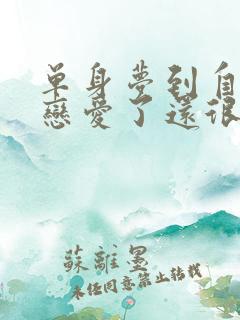 單身夢到自
戀愛了還很
蘇離墨
未經同意禁止轉載